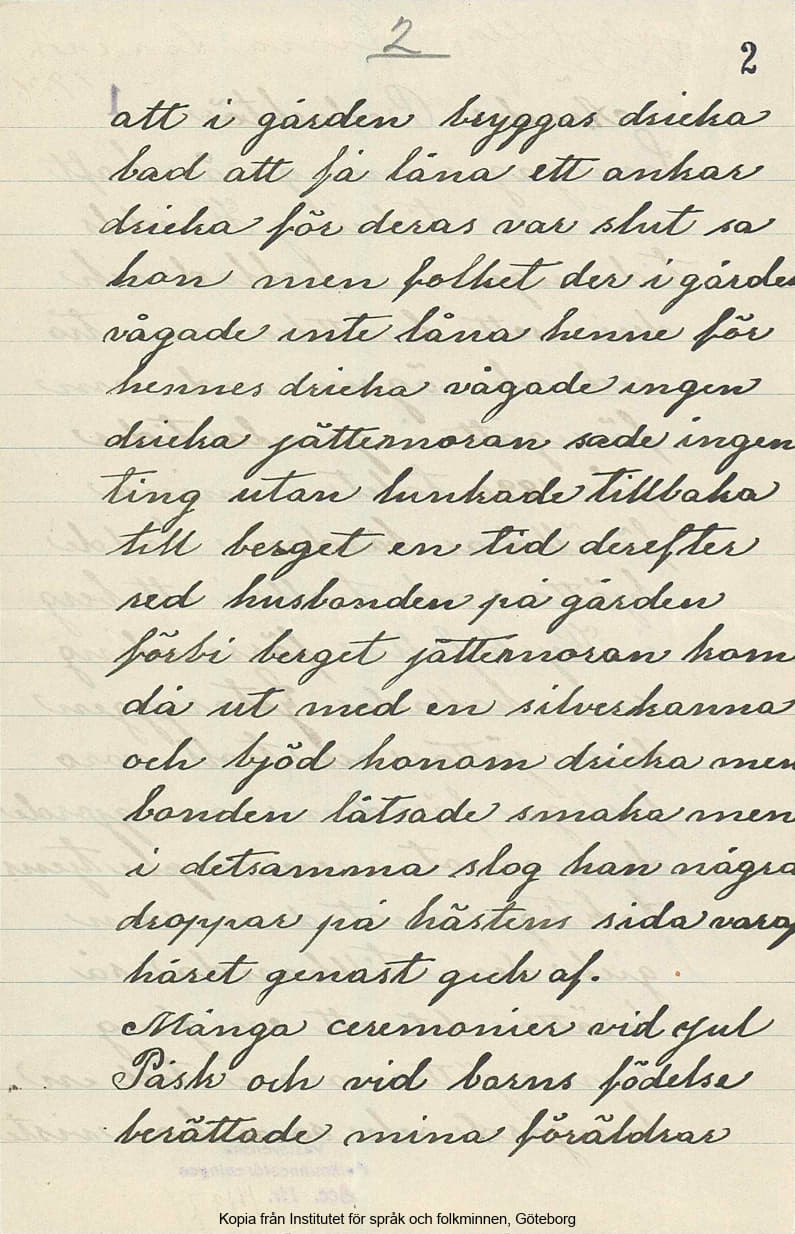 2
2
att i gården bryggas dricka
bad att få låna ett ankar
dricka för deras var slut sa
hon men folket der i gården
vågade inte låna henne för
hennes dricka vågade ingen
dricka jättemoran sade ingen
ting utan lunkade tillbaka
till berget en tid derefter
red husbonden på gården
förbi berget jättemoran kom
då ut med en silverkanna
och bjöd honom dricka men
bonden låtsade smaka men
i detsamma slog han några
droppar på hästens sida varaf
håret genast gick af.
Många ceremonier vid Jul
Påsk och vid barns födelse
berättade mina föräldrar
Kopia från Institutet för språk och folkminnen, Göteborg